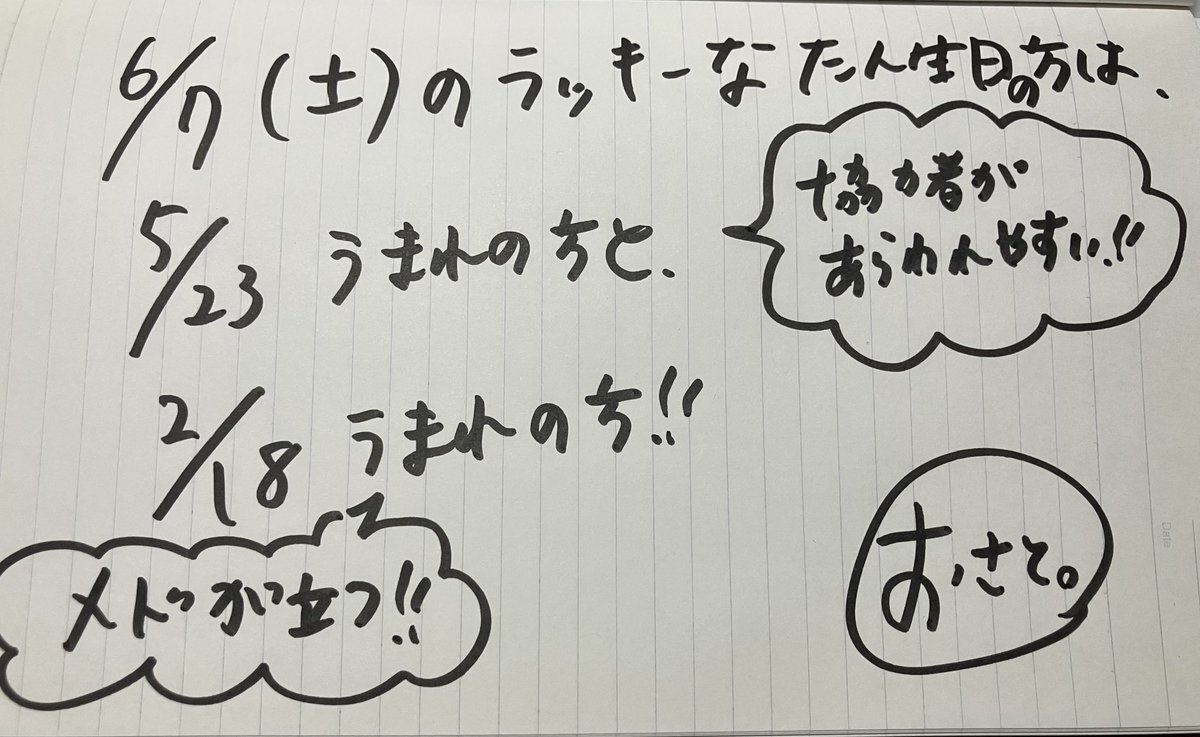 6/7(土)のラッキーなたん生日の方は、
協力者が
あらわれやすい!!
5/23 うまれの方と、
2/18 うまれの方!!
メドが立つ!!
おさと。
Date